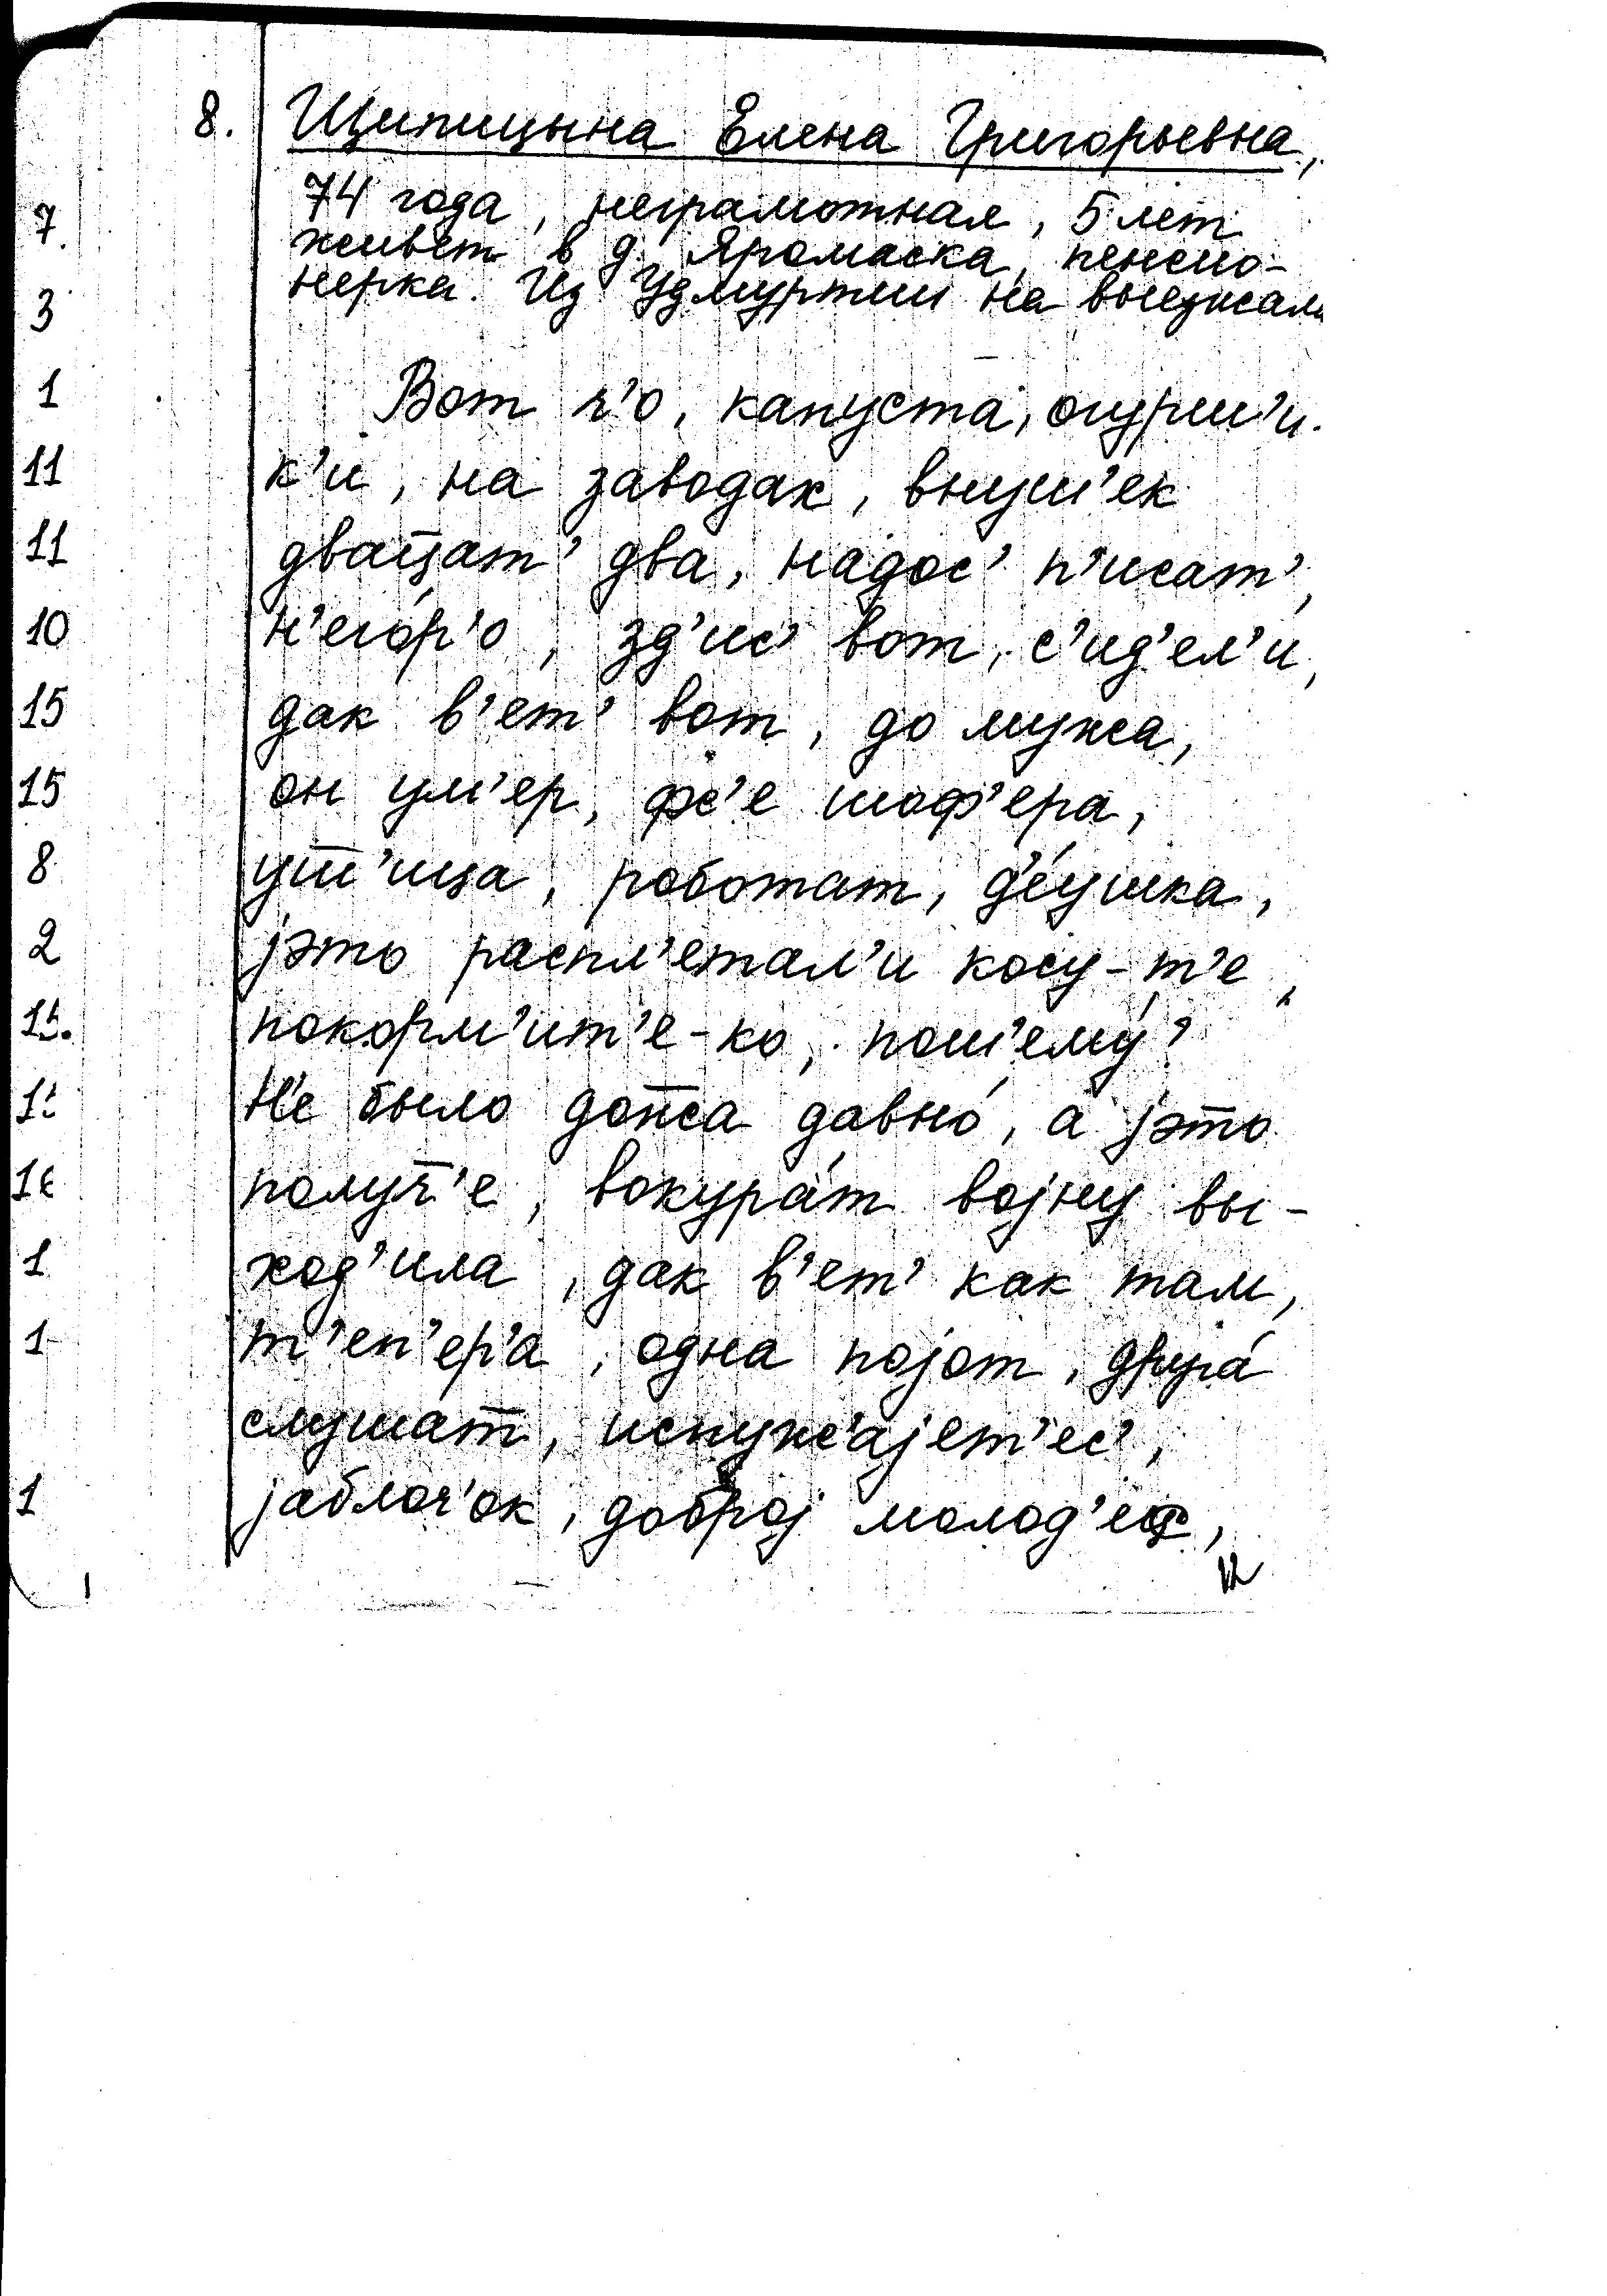 8. Щипицына Елена Григорьевна,
74 года, неграмотная, 5 лет
7.
живет в д. Яромаска, пенсио-
нерка. Из Удмуртии не выезжала
3
1 Вот ч'о, капуста, огурш'и-
11 к'и, на заводах, внуш'ек
11 двац̄ат' два, надос' п'исат',
10 н'его́р'о, зд'ис' вот, с'ид'ел'и,
15 дак в'ет' вот, до мужа,
15 он ум'ер, фс'е шоф'ера,
8 ут̄'ица, роботат, д'е́ушка,
2 jэто распл'етал'и косу-т'е,
15. покорм'ит'е-ко, пош'ему́?
Н'е было дож̄а давно́, а jэт̄о
получ̄'е, вокура́т воjну вы-
1 ход'ила, дак в'ет' как там,
1 т'еп'ер'а, одна поjот, друга́
слушат̄, испуж'аjет'ес',
1 jаблоч'ок, доброj молод'ец,